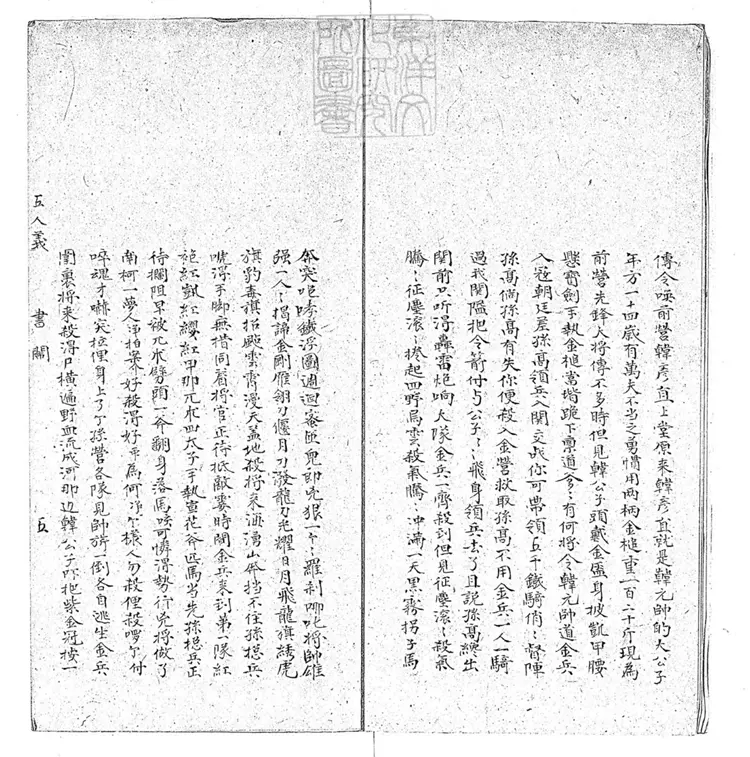 傳令喚前營韓彥直上堂原來韓彥直就是韓元帥的大公子
年方一十四歲有萬夫不当之勇慣用兩柄金槌重一百二十斤現為
前營先鋒大將傳不多時但見韓公子頭戴金盔身披凱甲腰
懸寶劍手執金槌當堦跪下禀道爹:有何將令韓元帥道金兵
入冦朝廷差孫高領兵入関交战你可帶領五千鐵騎俏:督陣
孫高倘孫高有失你便殺入金營救取孫高不用金兵一人一騎
過我関隘把令箭付与公子::飛身領兵去了且說孫高總出
関前只听得轟雷炮响大隊金兵一齊殺到但見征塵滾:殺氣
騰:征塵滾:捲起四野烏雲殺氣騰:冲滿一天黑霧拐子馬
奔突咆哮鐵浮圖週迴密匝兇即兇狠一个:羅刹哪吒將帥雄
强一人:揭諦金剛雁翎刀偃月刀潑龍刀光耀日月飛龍旗綉虎
旗豹毒旗招颭雲霄漫天盖地殺將來洒湧山奔挡不住孫總兵
唬得手脚無措同着將官正待抵敵霎時間金兵來到第一隊紅
袍紅凱紅纓紅甲那兀朮四太子手執萱花斧匹馬当先孫總兵正
待攔阻早被兀朮劈頭一斧翻身落馬咳可憐得勢行兇將做了
南柯一夢人
啐魂才嚇突拉俚身上了尔孫營各隊見帥旂一倒各自逃生金兵
圍裏將來殺得尸橫遍野血流成河那边韓公子吓把紫金冠按一
五人義
書閙
五